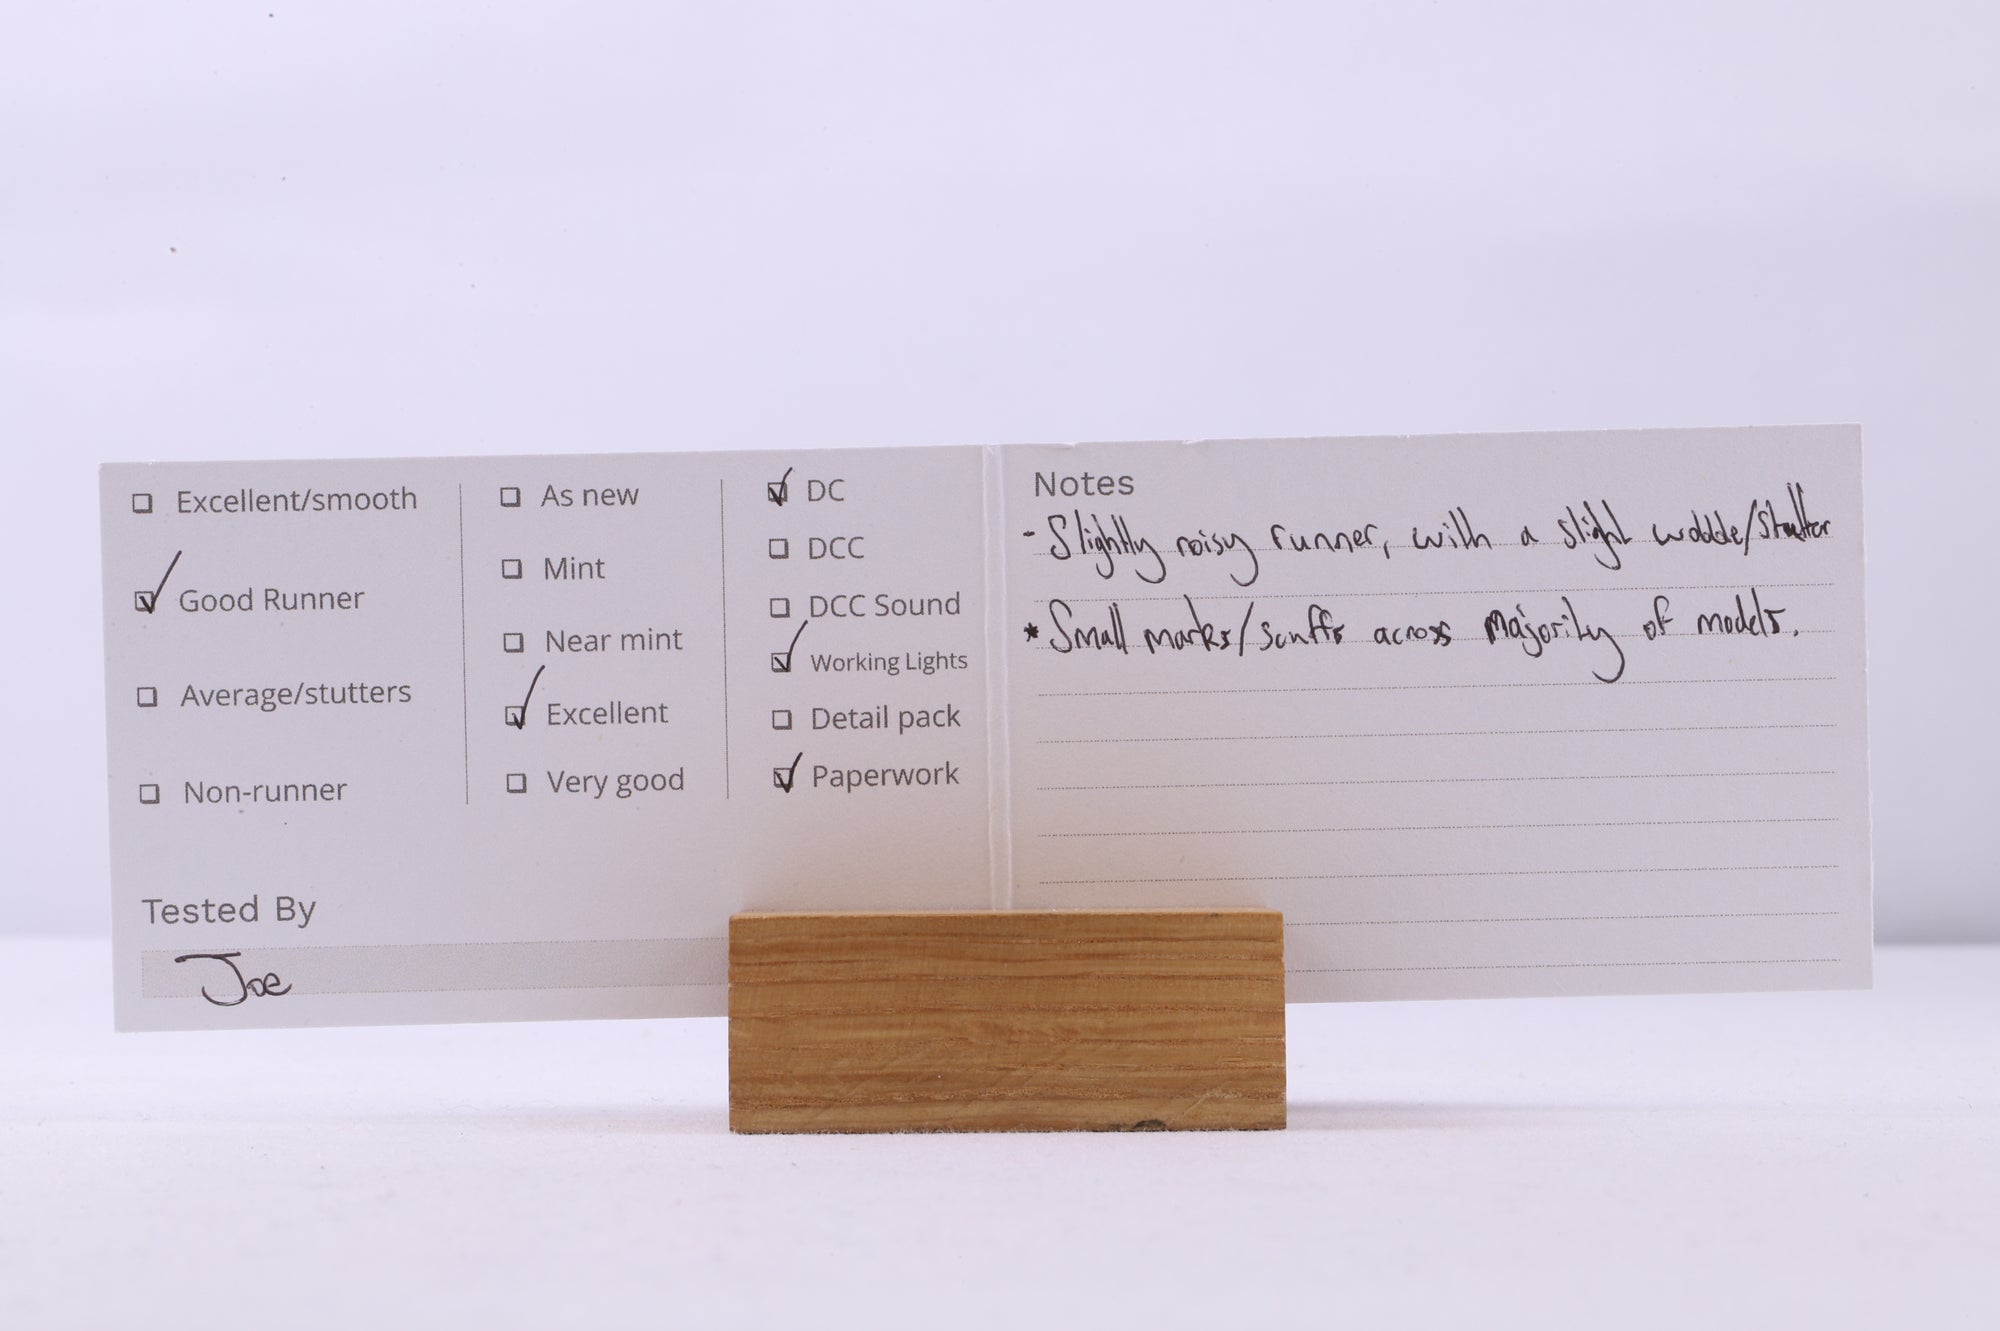 Excellent/smooth
Good Runner
Average/stutters
Non-runner
As new
Mint
Near mint
Excellent
Very good
DC
DCC
DCC Sound
Working Lights
Detail pack
Paperwork
Tested By
Joe
Notes
- Slightly noisy runner, with a slight wobble/stutter
* Small marks/scuffs across majority of models.